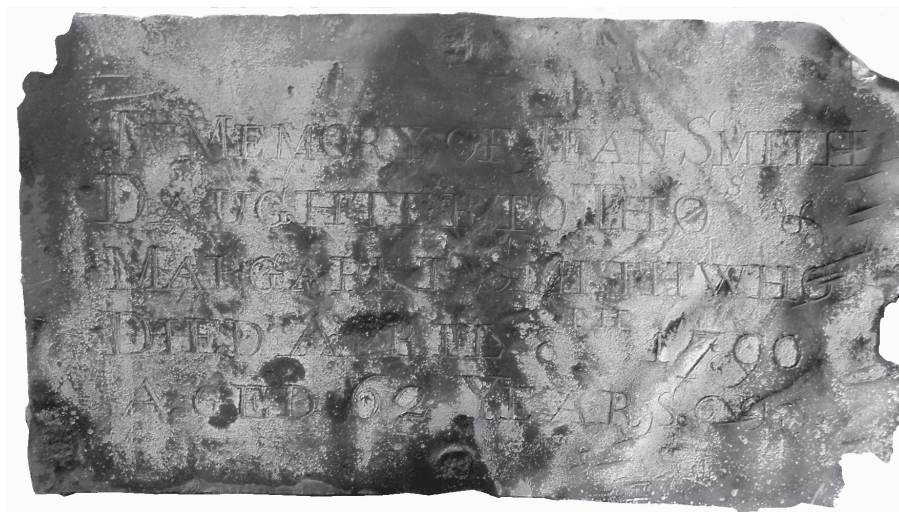 IN MEMORY OF JEAN SMITH
DAUGHTER TO THOS &
MARGARET SMITH WHO
DIED APRILE 8TH 1790
AGED 62 YEARS